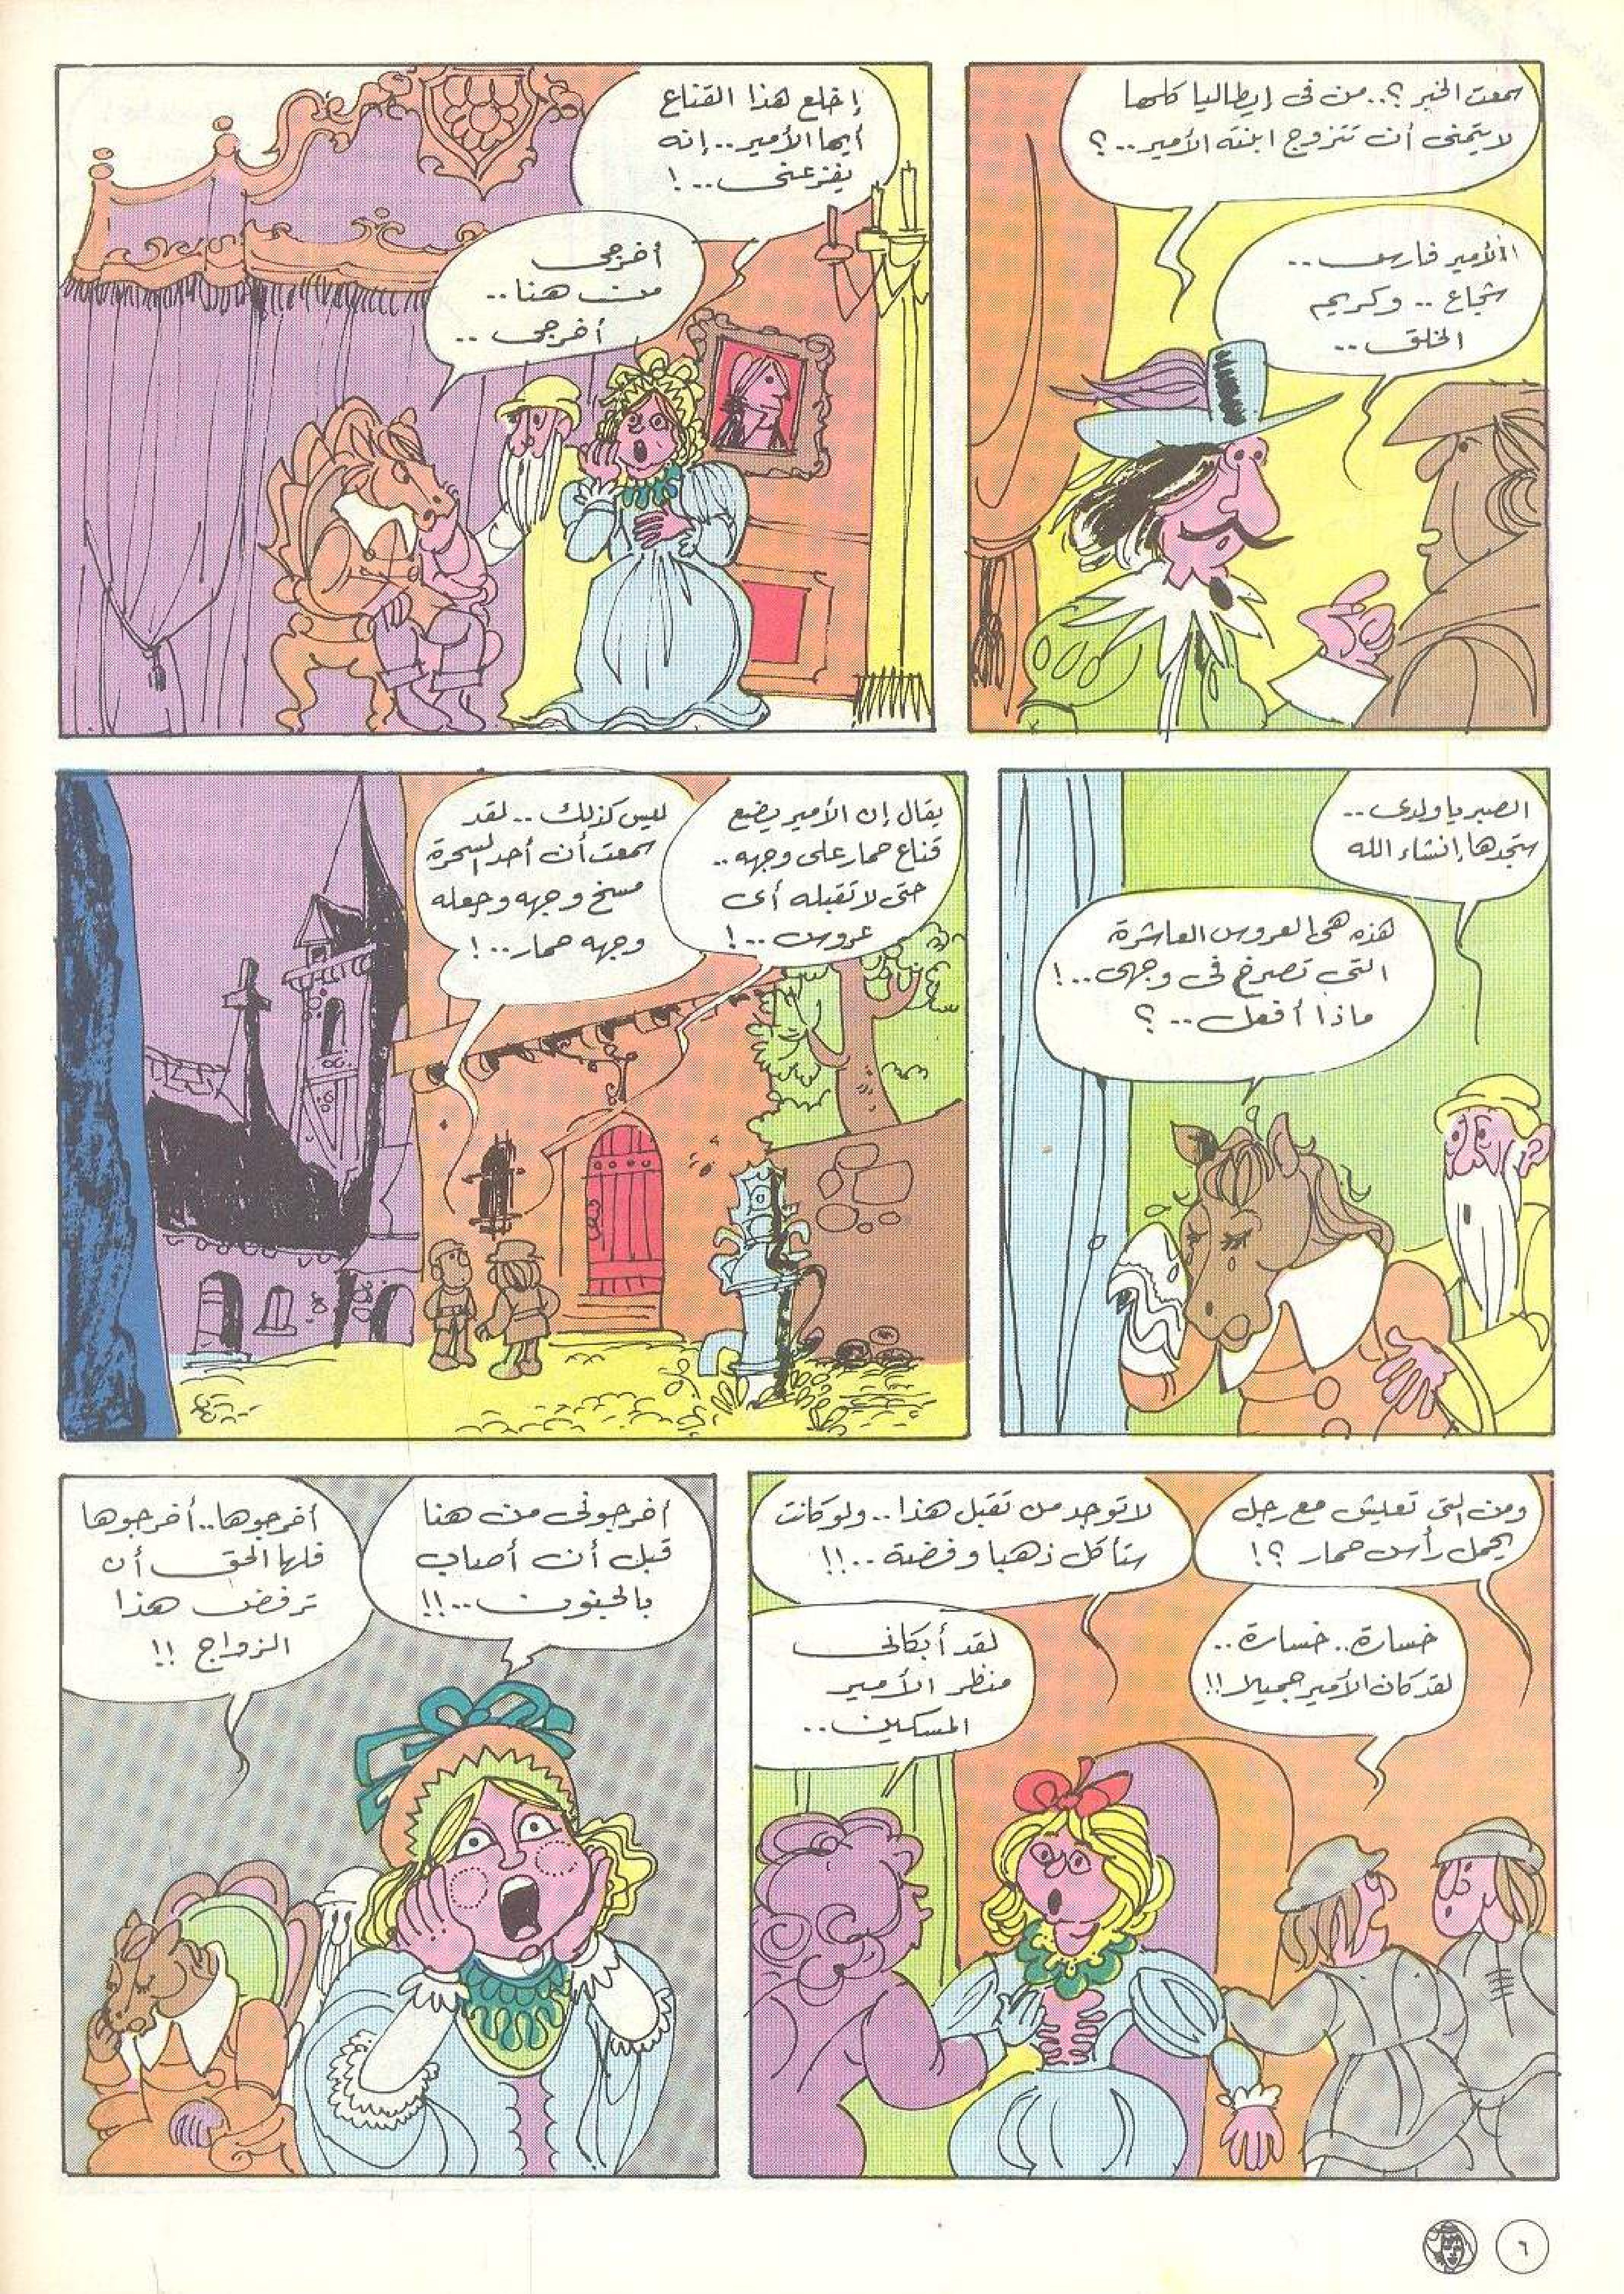 سمعت الخبر ؟.. من فى إيطاليا كلها
لا يتمنى أن تتزوج ابنته الأمير..؟
الأمير فارس..
شجاع .. وكريم
الخلق ..
إخلع هذا القناع
أيها الأمير.. إنه
يفزعنى ..!
أخرجى
من هنا ..
أخرجى ..
الصبر يا ولدى ..
ستجدها إنشاء الله
هذه هى العروس العاشرة
التى تصرخ فى وجهى ..!
ماذا أفعل .. ؟
يقال إن الأمير يضع
قناع حمار على وجهه ..
حتى لا تقبله أى
عروس ..!
ليس كذلك .. لقد
سمعت أن أحد السحرة
مسخ وجهه وجعله
وجهه حمار ..!
ومن التى تعيش مع رجل
يحمل رأس حمار ؟!
لا توجد من تقبل هذا .. ولو كانت
ستأكل ذهبا وفضة ..!!
خسارة.. خسارة ..
لقد كان الأمير جميلا !!
لقد أبكانى
منظر الأمير
المسكين ..
أخرجونى من هنا
قبل أن أصاب
بالجنون ..!!
أخرجوها.. أخرجوها
فلها الحق أن
ترفض هذا
الزواج !!
٦